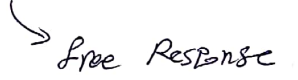 free Response